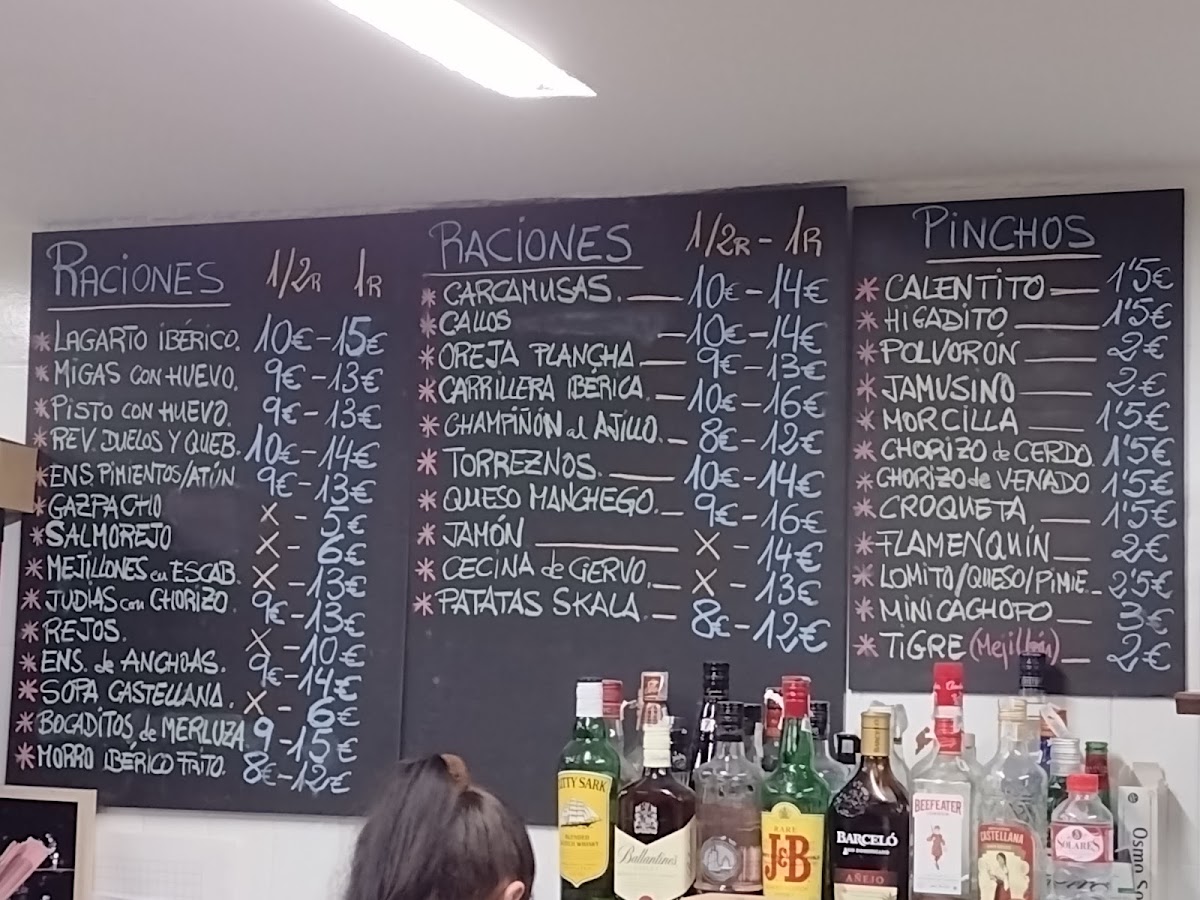 RACIONES 1/2R 1R
* LAGARTO IBÉRICO. 10€-15€
* MIGAS CON HUEVO. 9€-13€
* PISTO CON HUEVO. 9€-13€
* REV. DUELOS Y QUEB. 10€-14€
* ENS PIMIENTOS/ATÚN 9€-13€
* GAZPACHO X - 5€
* SALMOREJO X - 6€
* MEJILLONES en ESCAB. X - 13€
* JUDIAS con CHORIZO. 9€-13€
* REJOS. X - 10€
* ENS. de ANCHOAS. 9€-14€
* SOPA CASTELLANA. X - 6€
* BOCADITOS de MERLUZA 9-15€
* MORRO IBÉRICO FRITO. 8€-12€
RACIONES 1/2R - 1R
* CARCAMUSAS. 10€-14€
* CALLOS 10€-14€
* OREJA PLANCHA 9€-13€
* CARRILLERA IBÉRICA. 10€-16€
* CHAMPIÑÓN al AJILLO. 8€-12€
* TORREZNOS. 10€-14€
* QUESO MANCHEGO. 9€-16€
* JAMÓN X - 14€
* CECINA de CIERVO. X - 13€
* PATATAS SKALA. 8€-12€
PINCHOS
* CALENTITO 1'5€
* HIGADITO 1'5€
* POLVORÓN 2€
* JAMUSINO 2€
* MORCILLA 1'5€
* CHORIZO de CERDO. 1'5€
* CHORIZO de VENADO 1'5€
* CROQUETA 1'5€
* FLAMENQUÍN 2€
* LOMITO/QUESO/PIMIE. 2'5€
* MINICACHOPO 3€
* TIGRE (Mejillón) 2€
CUTTY SARK
BLENDED
SCOTCH WHISKY
Ballantine's
RARE
J&B
BARCELÓ
AÑEJO
BEEFEATER
LONDON
CASTELLANA
SOLARES
Osmo